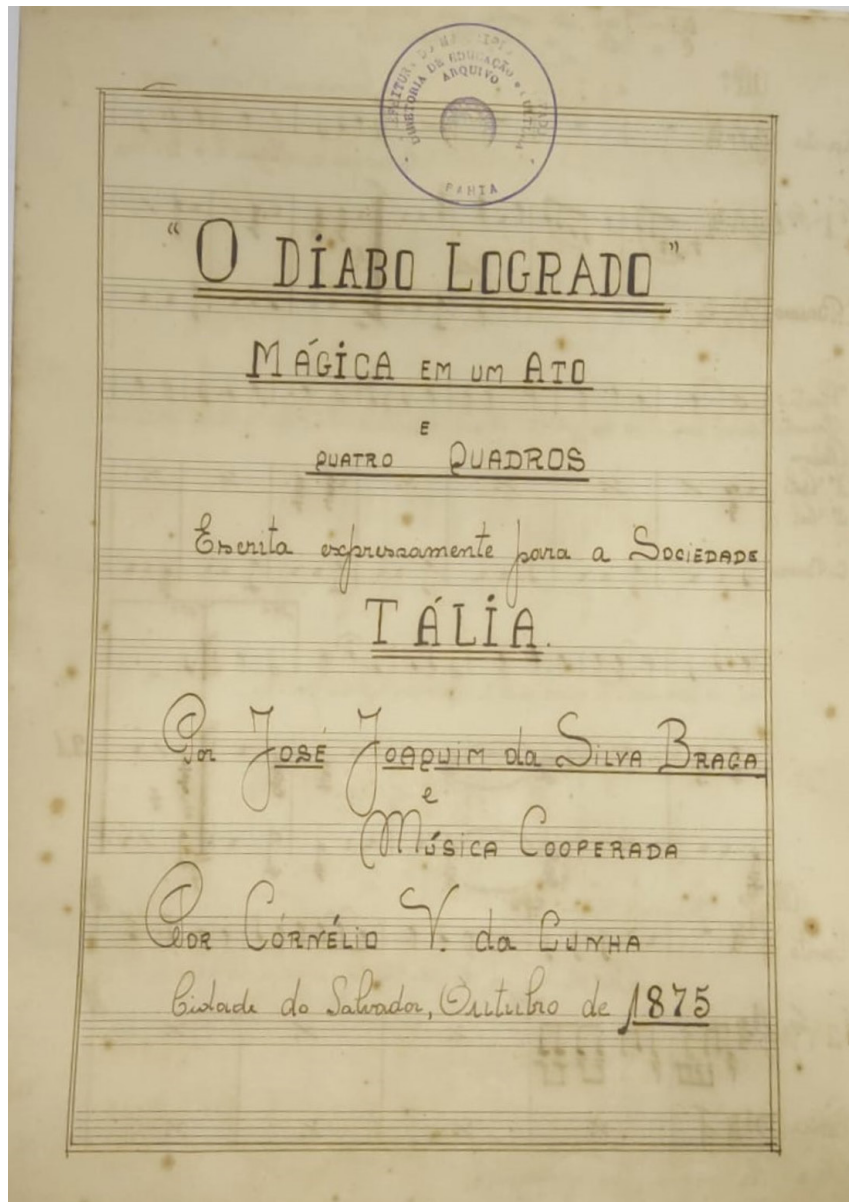 DIRETORIA DE EDUCAÇÃO E
ARQUIVO
BAHIA
"O DIABO LOGRADO"
MÁGICA EM UM ATO
E
QUATRO QUADROS
Escrita expressamente para a SOCIEDADE
TÁLIA.
Por JOSÉ JOAQUIM da SILVA BRAGA
e
MÚSICA COOPERADA
POR CÓRNÉLIO V. da CUNHA
Cidade do Salvador, Outubro de 1875